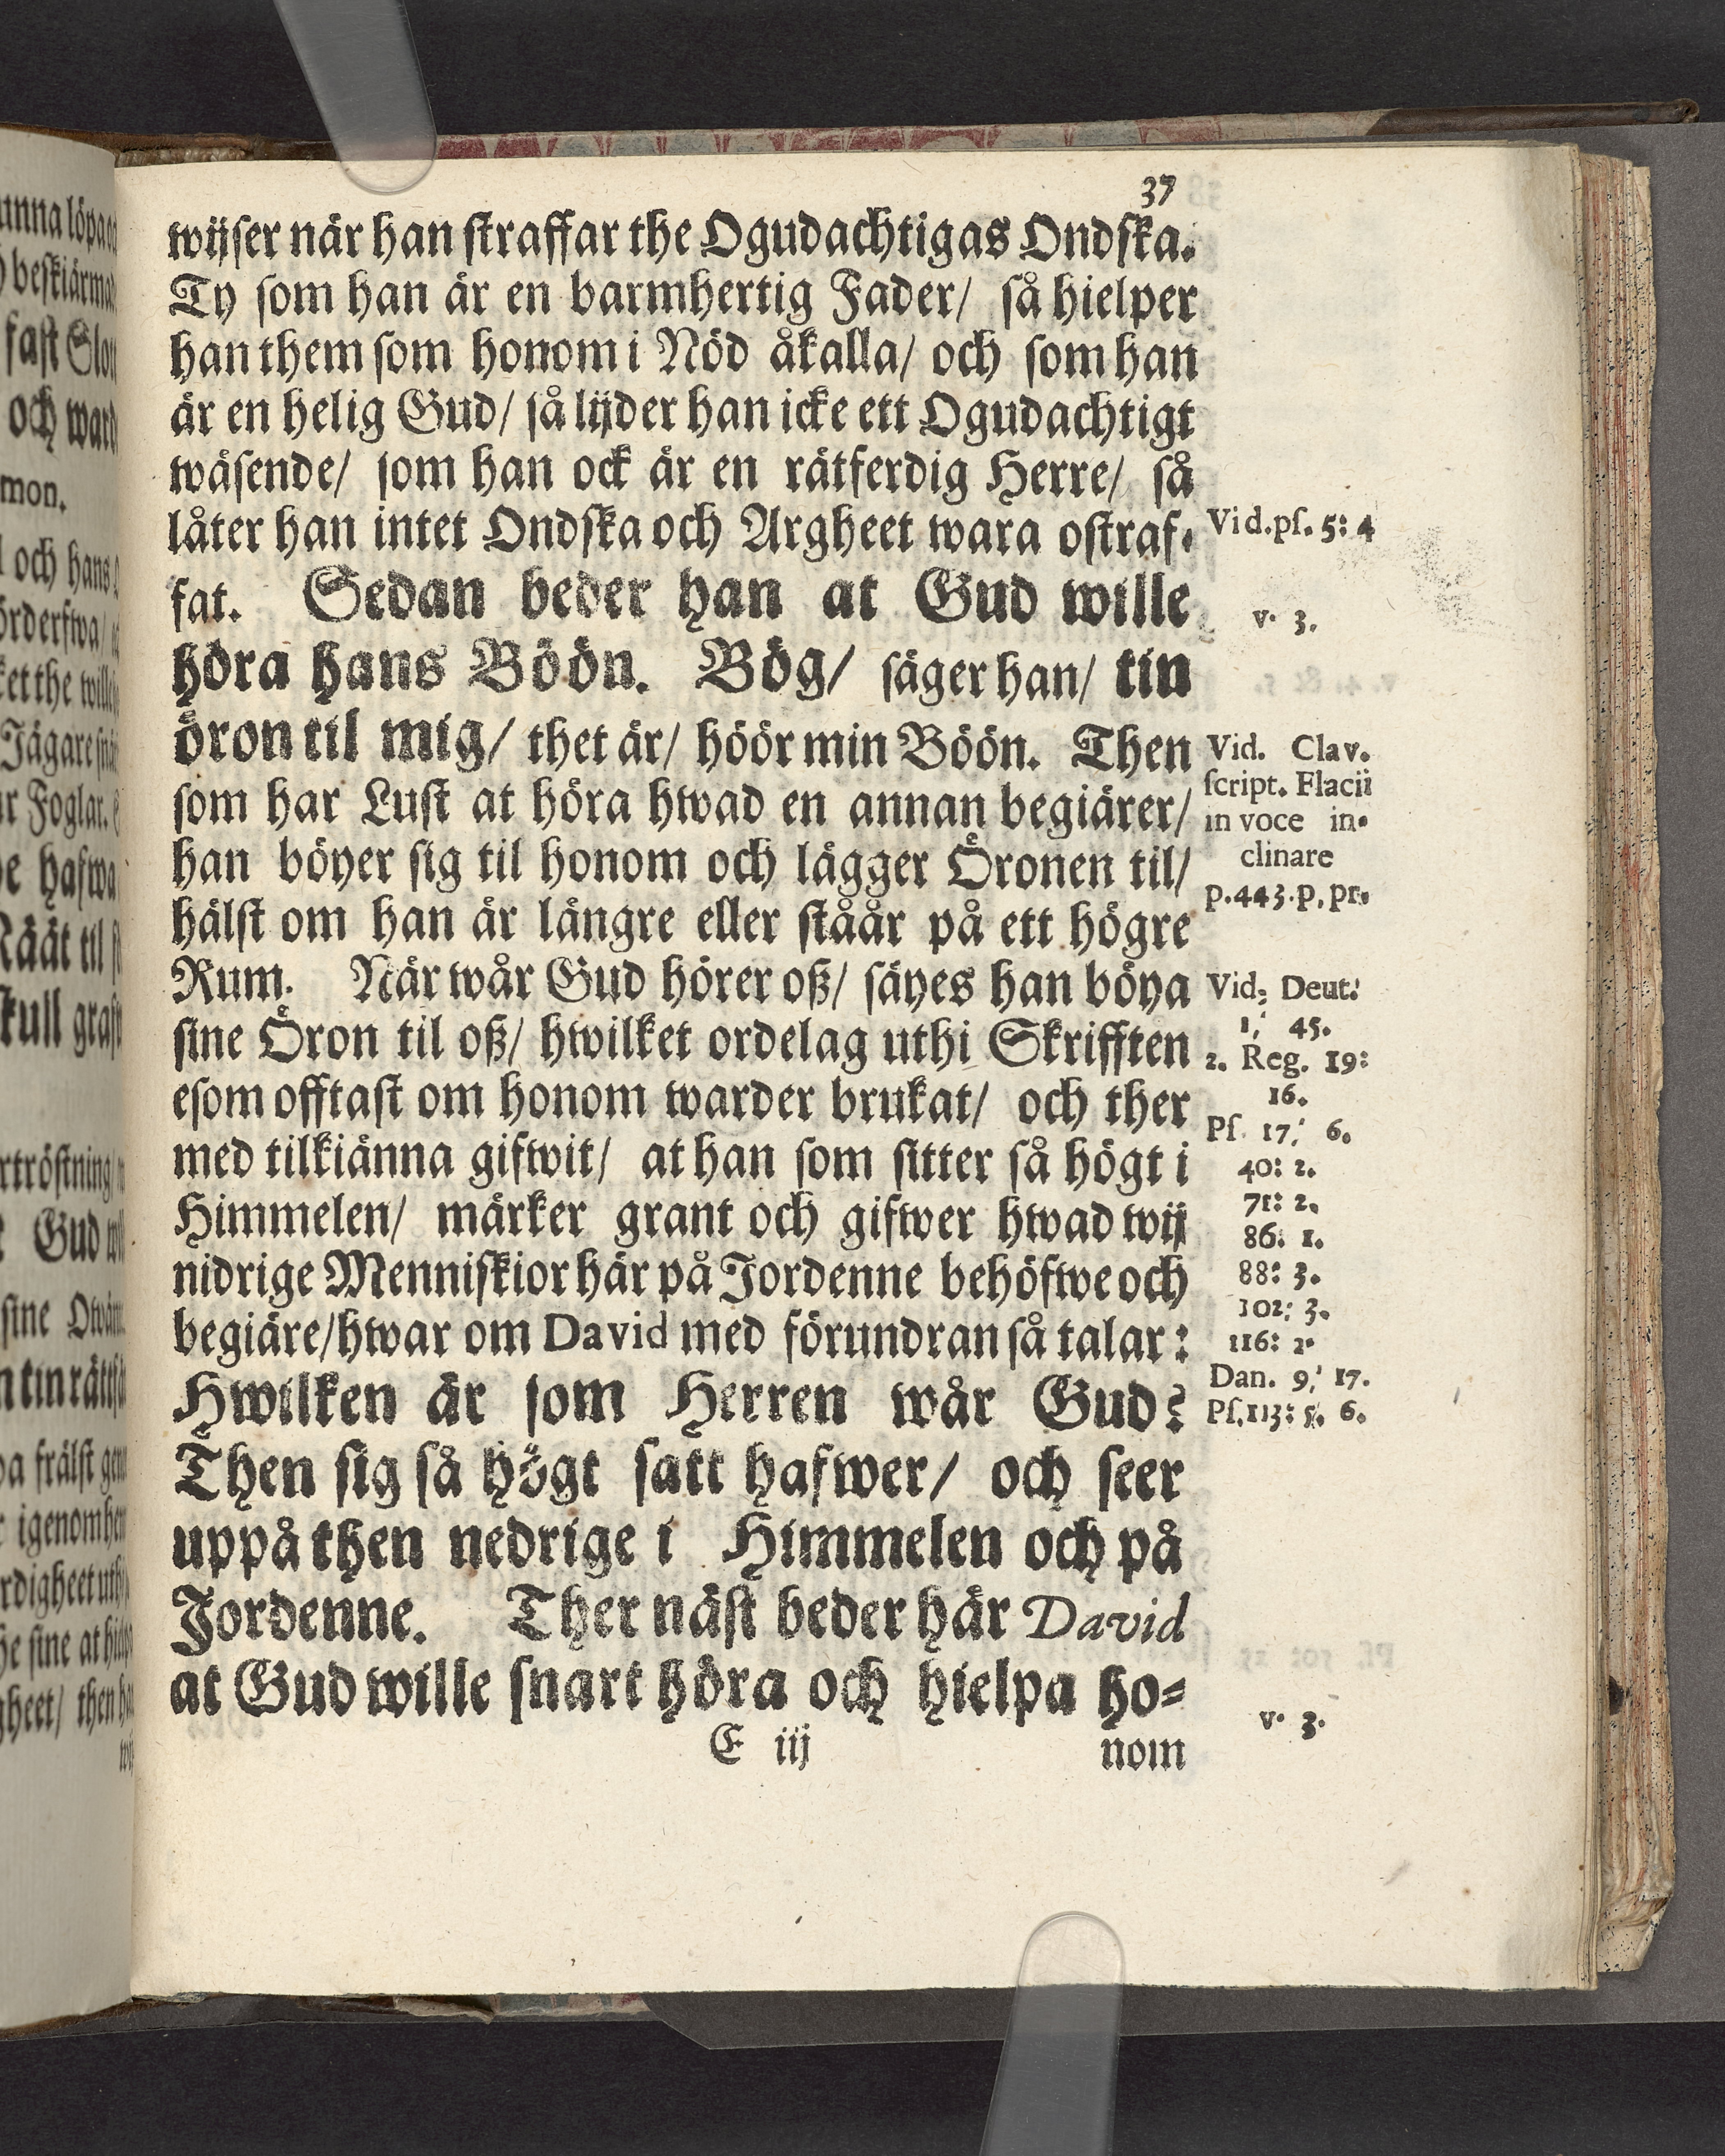 37
wijser när han straffar the Ogudachtigas Ondska.
Ty som han är en barmhertig Fader/ så hielper
han them som honom i Nöd åkalla/ och som han
är en helig Gud/ så lijder han icke ett Ogudachtigt
wäsende/ som han ock är en rätferdig Herre/ så
låter han intet Ondska och Argheet wara ostraf-
fat. Sedan beder han at Gud wille
höra hans Böön. Bög/ säger han/ tin
öron til mig/ thet är/ höör min Böön. Then
som har Lust at höra hwad en annan begiärer/
han böyer sig til honom och lägger Öronen til/
hälst om han är längre eller ståår på ett högre
Rum. När wår Gud hörer oß/ säyes han böya
sine Öron til oß/ hwilket ordelag uthi Skrifften
esom offtast om honom warder brukat/ och ther
med tilkiänna gifwit/ at han som sitter så högt i
Himmelen/ märker grant och gifwer hwad wij
nidrige Menniskior här på Jordenne behöfwe och
begiäre/hwar om David med förundran så talar:
Hwilken är som Herren wår Gud?
Then sig så högt satt hafwer/ och seer
uppå then nedrige i Himmelen och på
Jordenne. Ther näst beder här David
at Gud wille snart höra och hielpa ho-
E iij nom
Vid. ps. 5: 4
v. 3.
Vid. Clav.
script. Flacii
in voce in-
clinare
p. 443. p. pr.
Vid. Deut.
1, 45.
2. Reg. 19:
16.
Ps. 17, 6.
40: 2.
71: 2.
86: 1.
88: 3.
102: 3.
116: 2.
Dan. 9, 17.
Ps. 113: 5. 6.
v. 3.